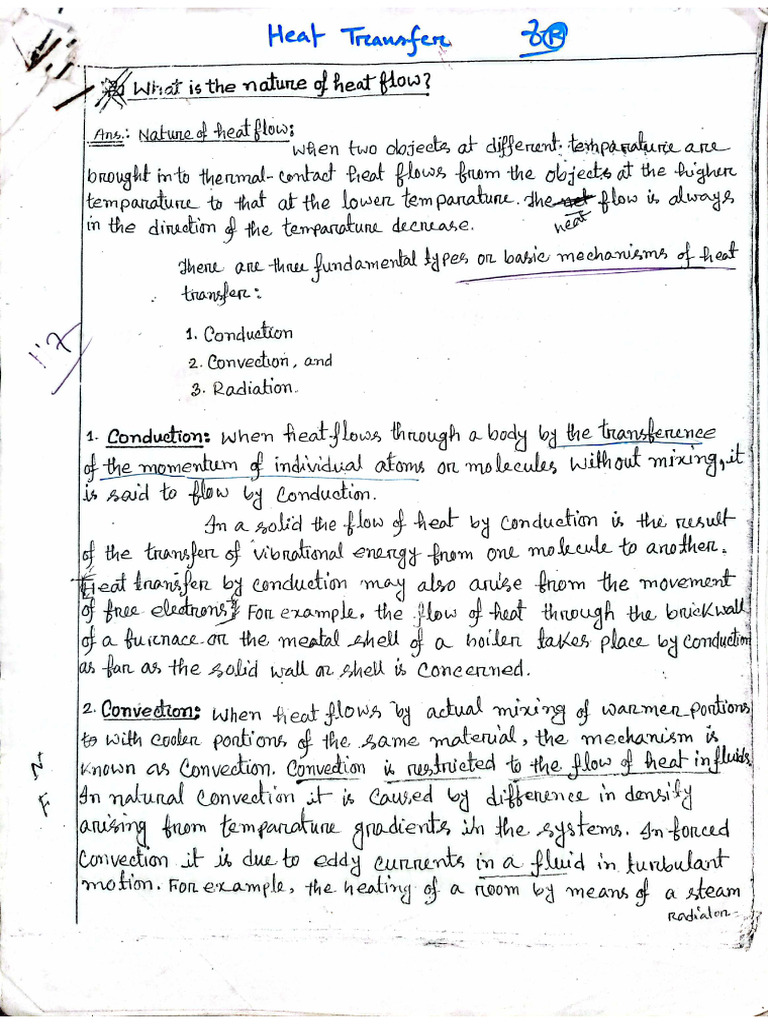 Heat Transfer
What is the nature of heat flow?
Ans.: Nature of heat flow:
When two objects at different temparature are
brought in to thermal-contact heat flows from the objects at the higher
temparature to that at the lower temparature. The heat flow is always
in the direction of the temparature decrease.
There are three fundamental types or basic mechanisms of heat
transfer:
1. Conduction
2. Convection, and
3. Radiation.
1. Conduction: When heat flows through a body by the transference
of the momentum of individual atoms or molecules without mixing, it
is said to flow by conduction.
In a solid the flow of heat by conduction is the result
of the transfer of vibrational energy from one molecule to another.
Heat transfer by conduction may also arise from the movement
of free electrons. For example, the flow of heat through the brick wall
of a furnace or the meatal shell of a boiler takes place by conduction
as far as the solid wall or shell is concerned.
2. Convection: When heat flows by actual mixing of warmer portions
with cooler portions of the same material, the mechanism is
known as convection. Convection is restricted to the flow of heat in fluids.
In natural convection it is caused by difference in density
arising from temparature gradients in the systems. In forced
convection it is due to eddy currents in a fluid in turbulant
motion. For example, the heating of a room by means of a steam
radiator.
N
F